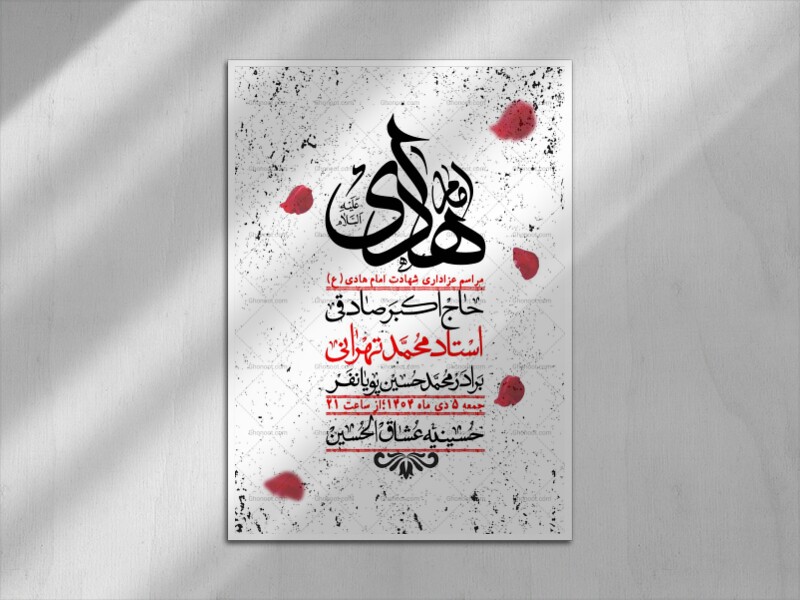 امام هادی
علیه السلام
مراسم عزاداری شهادت امام هادی (ع)
حاج اکبر صادقی
استاد محمد تهرانی
برادر محمدحسین پویانفر
جمعه ۵ دی ماه ۱۴۰۴؛ از ساعت ۲۱
حسینیه عشاق الحسین